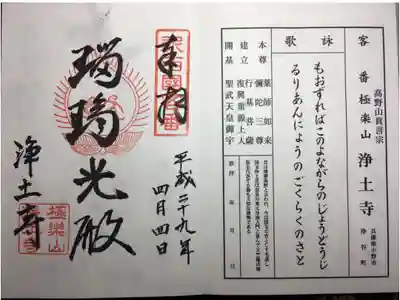 客番 極楽山 浄土寺
高野山真言宗
兵庫県小野市
浄谷町
詠歌
もおずればこのよながらのじょうどうじ
るりあんにょうのごくらくのさと
本尊 薬師如来
彌陀三尊
建立 行基菩薩
復興 重源上人
開基 聖武天皇御宇
奉拝
瑠璃光殿
浄土寺
極楽山
平成二十九年
四月四日